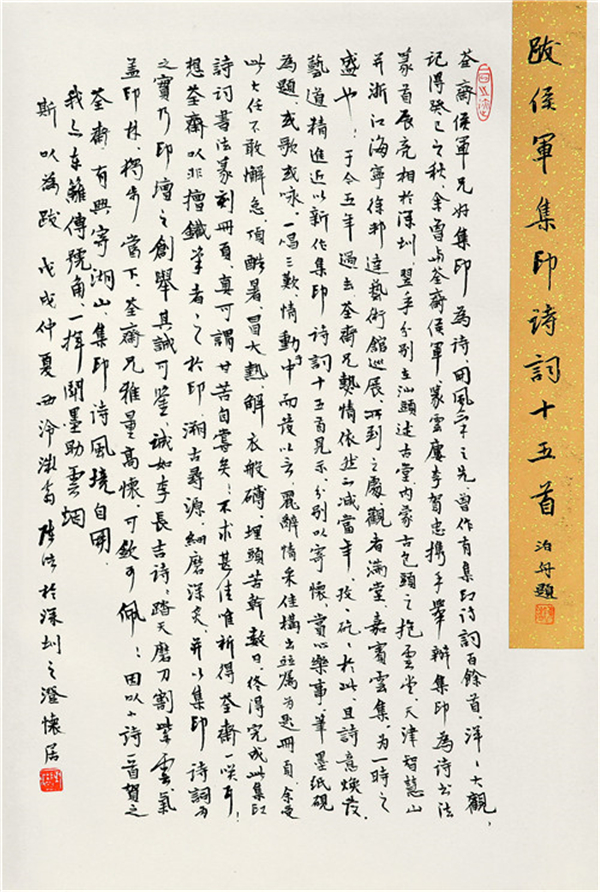 跋侯軍集印詩詞十五首
泊舟題
荃齋侯軍兄好集印為詩,開風氣之先,曾作有集印詩詞百餘首,洋洋大觀,
記得癸巳之秋,余曾與荃齋侯軍、篆雲廔李賀忠攜手舉辦集印為詩書法
篆首展亮相於深圳,翌年分別在汕頭述古堂、內蒙古包頭之抱雲堂、天津智慧山
并浙江海寧徐邦達藝術館巡展,所到之處觀者滿堂,嘉賓雲集,為一時之
盛也!于今五年過去,荃齋兄熱情依然不減當年,孜孜矻矻於此,且詩意煥發,
藝道精進近以新作集印詩詞十五首見示,分別以寄懷,賞心樂事,筆墨紙硯
為題,或歌或咏,一唱三歎,情動於中而發以言,麗辭情采佳構出並屬為書冊頁,余受
此大任不敢懈怠頂酷暑冒大熱解衣般礴,埋頭苦幹數日,終得完成此集印
詩詞書法篆刻冊頁,真可謂甘苦自嘗矣!不求甚佳唯祈得荃齋一咲耳!
想荃齋以非擅鐵筆者,之於印,溯古尋源,細磨深究,并以集印詩詞為
之實乃印壇之創舉其誠可鑒,誠如李長吉詩:踏天磨刀割紫雲氣
蓋印林獨步當下,荃齋兄雅量高懷,可欽可佩!因以小詩一首賀之
荃齋有興寄湖山,集印詩風境自開
我與東籬傳號角,一揮閒墨助雲烟
斯以為跋 戊戌仲夏西泠 於深圳之澄懷居